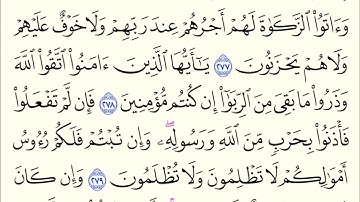 وَءَاتَوُا۟ ٱلزَّكَوٰةَ لَهُمْ أَجْرُهُمْ عِندَ رَبِّهِمْ وَلَا خَوْفٌ عَلَيْهِمْ
وَلَا هُمْ يَحْزَنُونَ ٢٧٧ يَٰٓأَيُّهَا ٱلَّذِينَ ءَامَنُوا۟ ٱتَّقُوا۟ ٱللَّهَ
وَذَرُوا۟ مَا بَقِىَ مِنَ ٱلرِّبَوٰٓا۟ إِن كُنتُم مُّؤْمِنِينَ ٢٧٨ فَإِن لَّمْ تَفْعَلُوا۟
فَأْذَنُوا۟ بِحَرْبٍ مِّنَ ٱللَّهِ وَرَسُولِهِۦ ۖ وَإِن تُبْتُمْ فَلَكُمْ رُءُوسُ
أَمْوَٰلِكُمْ لَا تَظْلِمُونَ وَلَا تُظْلَمُونَ ٢٧٩ وَإِن كَانَ